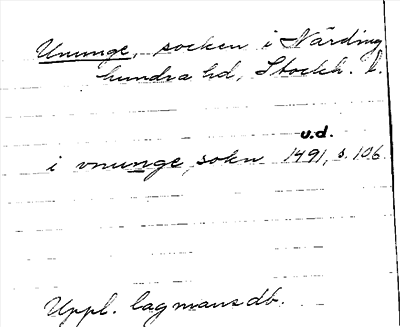 Ununge, socken i Närding
hundra hd, Stockh. l.
u.d.
i vnunge sokn 1491, s. 106.
Uppl. lagmansdb.